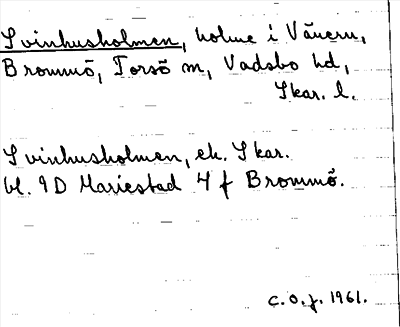 Svinhusholmen, holme i Vänern,
Brommö, Torsö sn, Vadsbo hd,
Skar. l.
Svinhusholmen, ek. Skar.
bl. 9D Mariestad 4 f Brommö.
C.O.J. 1961.